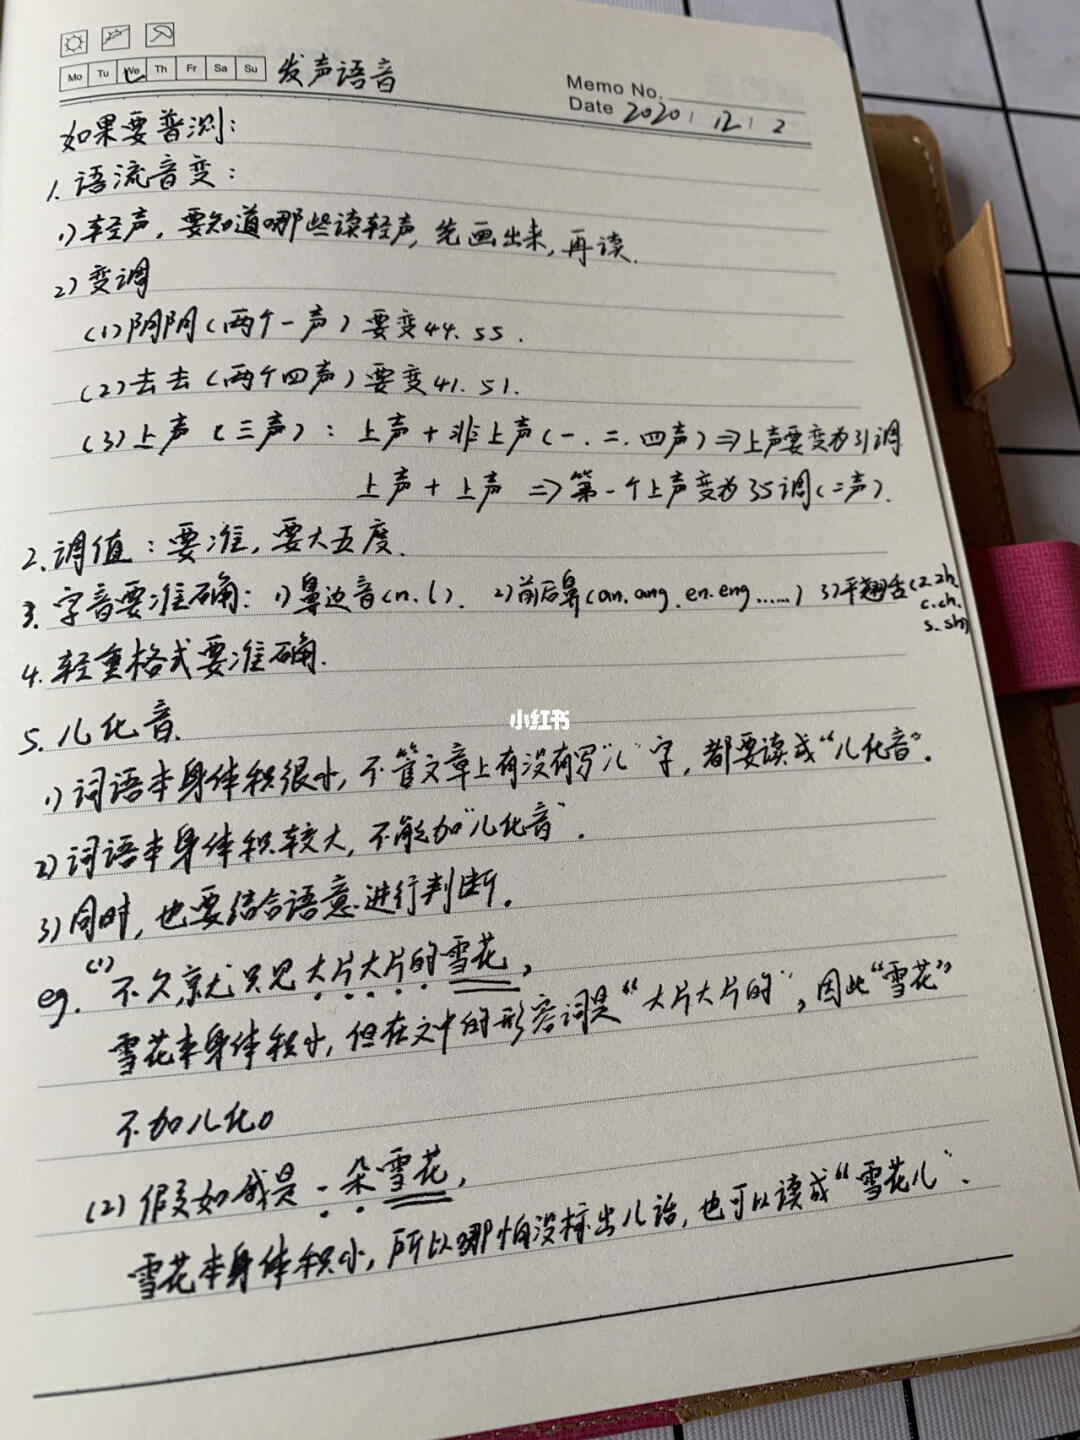 Mo Tu We Th Fr Sa Su 发声语音
Memo No.
Date 2020 12 2
如果要普测：
1. 语流音变：
1) 轻声，要知道哪些读轻声，先画出来，再读．
2) 变调
(1) 阴阴（两个一声）要变44．55．
(2) 去去（两个四声）要变41．51．
(3) 上声（三声）：上声＋非上声（一．二．四声）⇒上声要变为31调
上声＋上声 ⇒第一个上声变为35调（二声）．
2. 调值：要准，要大五度．
3. 字音要准确：1) 鼻边音(n. l). 2) 前后鼻(an. ang. en. eng……) 3) 平翘舌(z. zh.
c. ch.
s. sh)
4. 轻重格式要准确．
5. 儿化音．
小红书
1) 词语本身体积很小，不管文章上有没有写“儿”字，都要读成“儿化音”．
2) 词语本身体积较大，不能加“儿化音”．
3) 同时，也要结合语意进行判断。
eg. (1) 不久，就只见大片大片的雪花，
雪花本身体积小，但在文中的形容词是“大片大片的”，因此“雪花”
不加儿化。
(2) 假如我是一朵雪花，
雪花本身体积小，所以哪怕没标出儿话，也可以读成“雪花儿”．